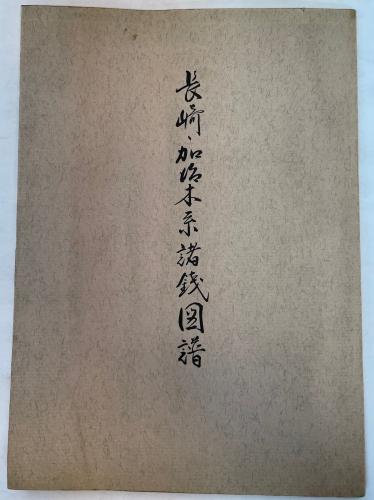 長崎・加治木系諸銭図譜